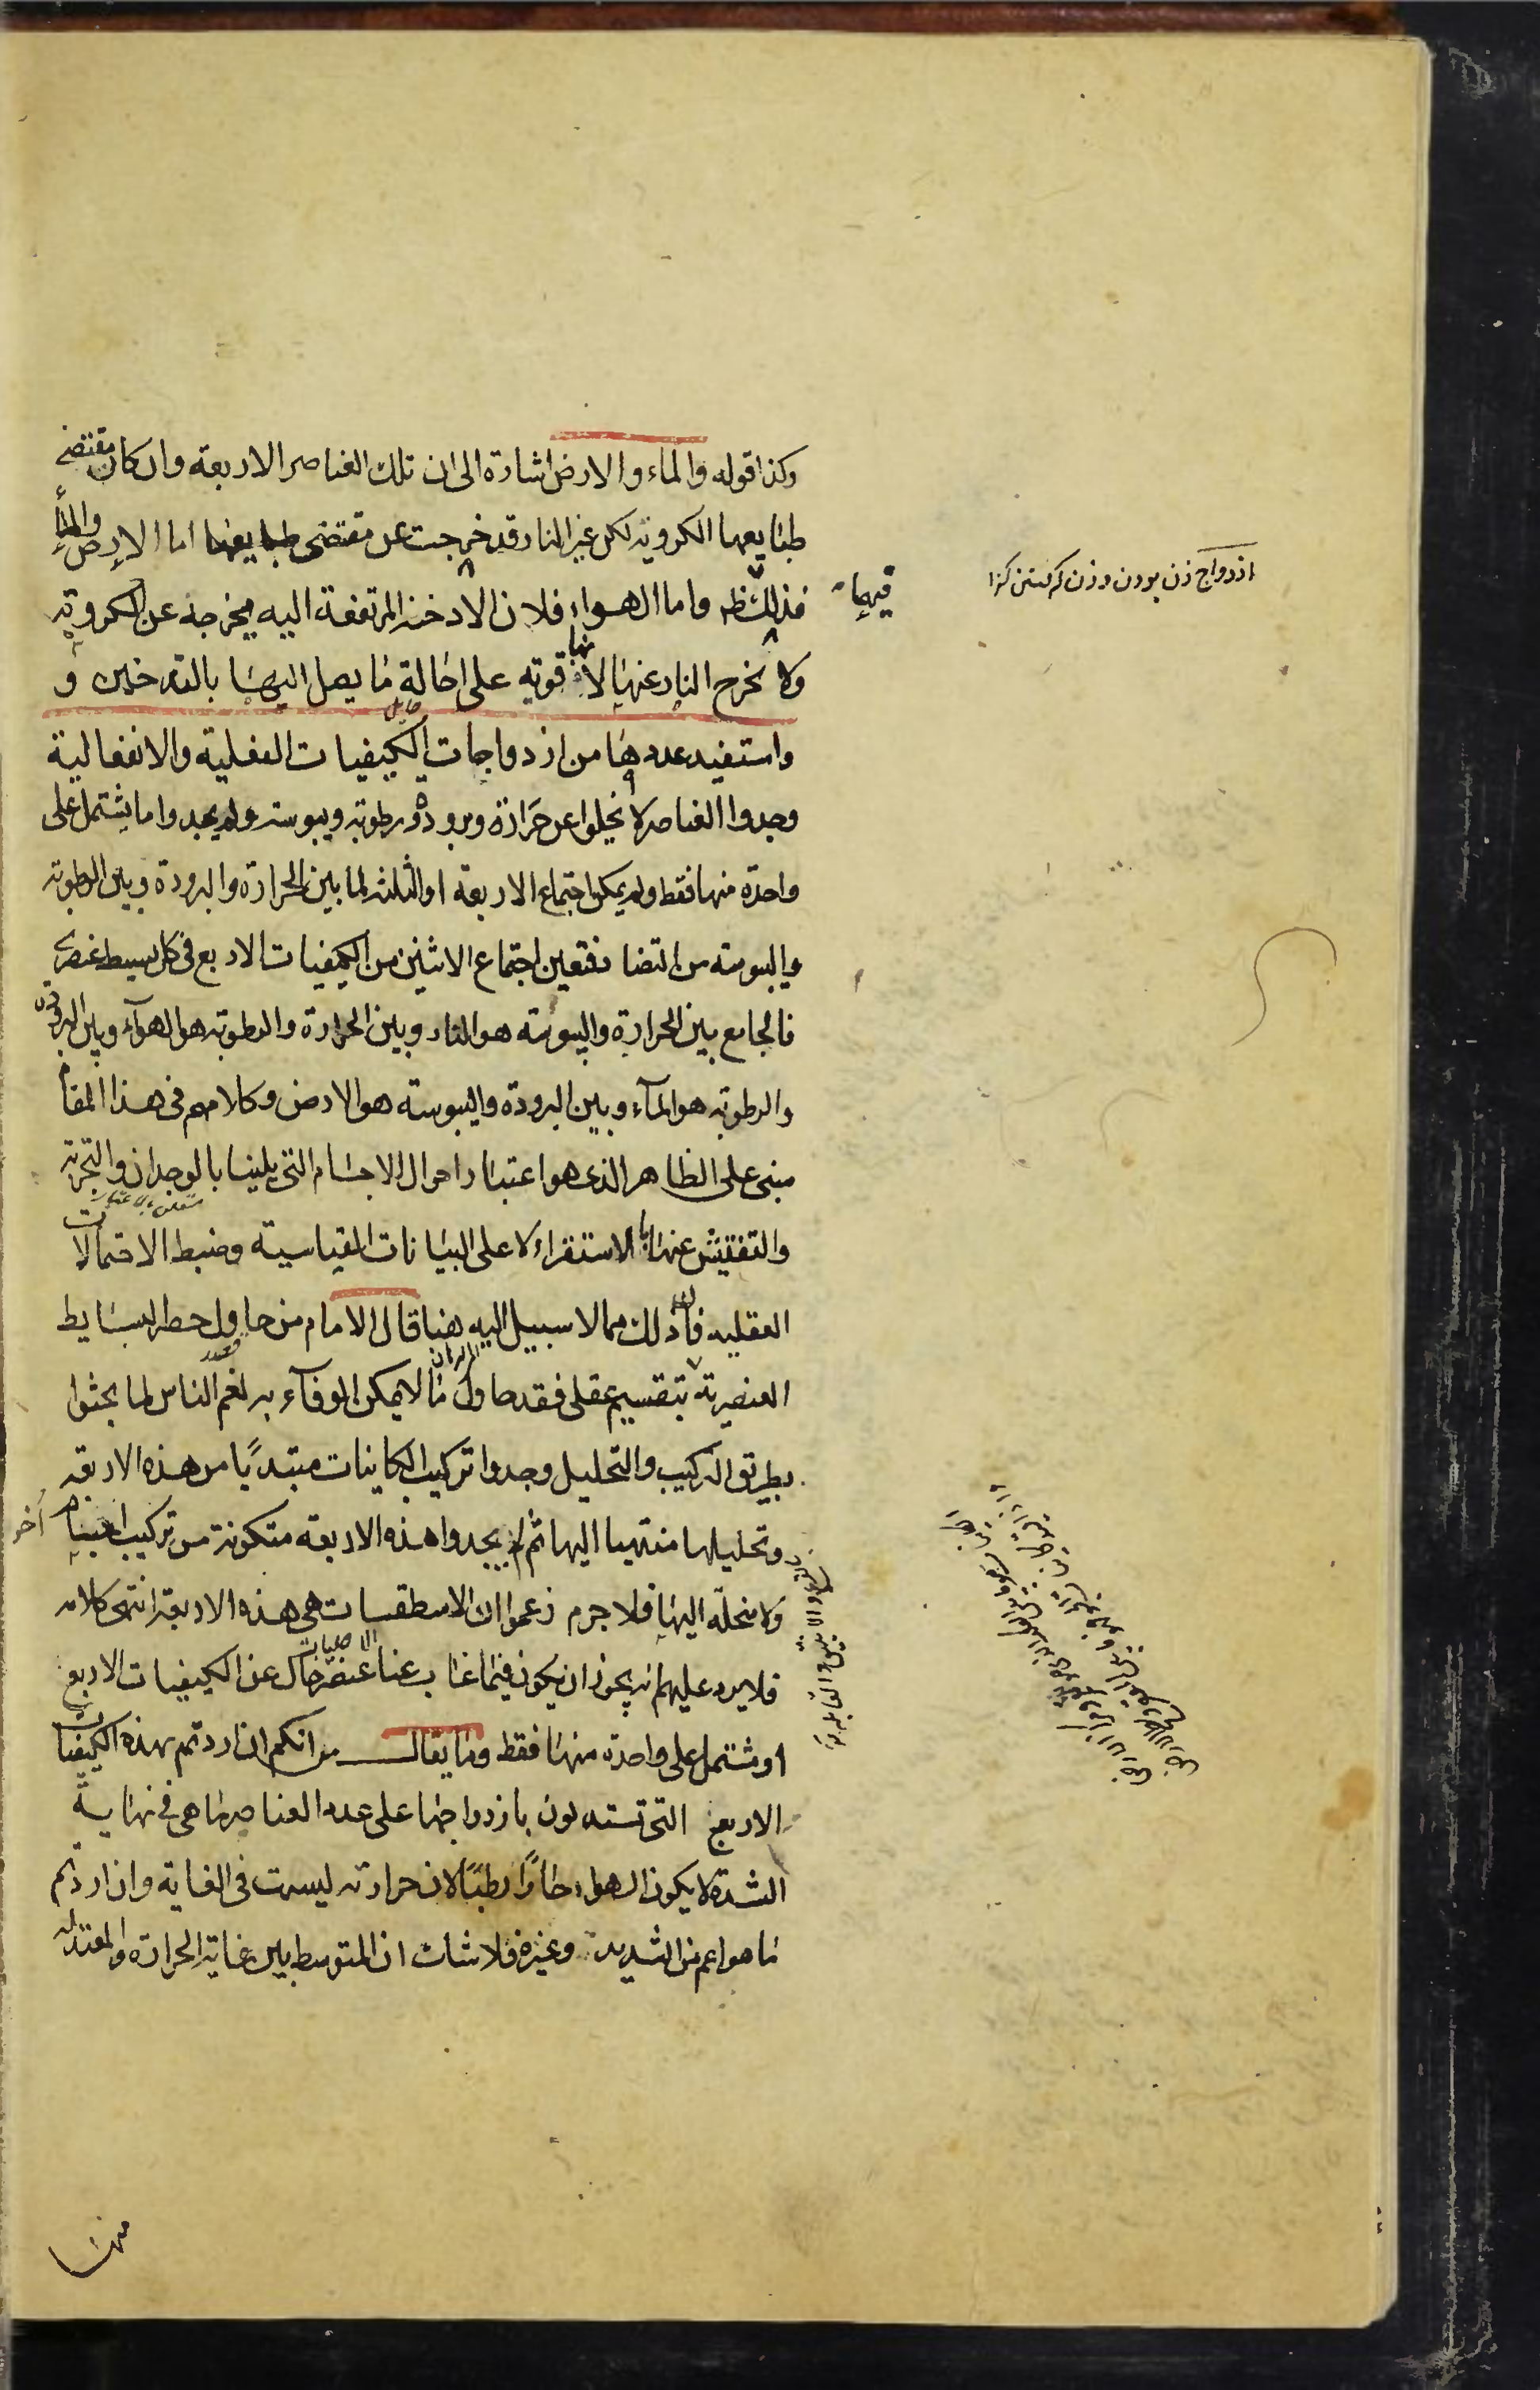 وكذا قوله والماء والارض اشارة الى ان تلك العناصر الاربعة وان كان مقتضى
طبايعها الكروية لكن غير النار قد خرجت عن مقتضى طبايعها اما الارض والماء
فذلك ظ واما الهواء فلان الادخنة المرتفعة اليه يخرجه عن الكروية
ولا يخرج النار عنها لانها قوية على احالة ما يصل اليها بالتدخين و
واستفيد عددها من ازدواجات الكيفيات الفعلية والانفعالية
وجدوا العناصر لا يخلوا عن حرارة وبرودة ورطوبة ويبوسة ولم يجدوا ما يشتمل على
واحدة منها فقط ولم يمكن اجتماع الاربعة او الثلثة لما بين الحرارة والبرودة وبين الرطوبة
واليبوسة من التضاد فتعين اجتماع الاثنين من الكيفيات الاربع فى كل بسيط عنصرى
فالجامع بين الحرارة واليبوسة هو النار وبين الحرارة والرطوبة هو الهوآء وبين البرودة
والرطوبة هو المآء وبين البرودة واليبوسة هو الارض وكلامهم فى هذا المقام
مبنى على الظاهر الذى هو اعتبار احوال الاجسام التى يلينا بالوجدان والتجربة
والتفتيش عنها بالاستقراء لا على البيانات القياسية وضبط الاحتمالات
العقلية فان ذلك مما لا سبيل اليه هنا قال الامام من حاول حصر البسايط
العنصرية بتقسيم عقلى فقد حاول ما لا يمكن الوفآء به نعم الناس لما بحثوا
بطريق التركيب والتحليل وجدوا تركيب الكاينات مبتدئا من هذه الاربعة
وتحليلها منتهيا اليها ثم لم يجدوا هذه الاربعة متكونة من تركيب اجسام أخر
ولا منحلة اليها فلا جرم زعموا ان الاسطقسات هى هذه الاربعة انتهى كلامه
فلا يرد عليهم انه يجوز ان يكون فيما غاب عنا عنصر خال عن الكيفيات الاربع
او مشتمل على واحدة منها فقط وما يقال من انكم ان اردتم بهذه الكيفيات
الاربع التى تستدلون بازدواجها على عدد العناصر ما هى فى نهاية
الشدة لا يكون الهواء حارا رطبا لان حرارته ليست فى الغاية وان اردتم
ما هو اعم من الشديدة وغيره فلا شك ان المتوسط بين غاية الحرارة والمعتدله
فيهما
ازدواج زن بودن و زن كرفتن كنز